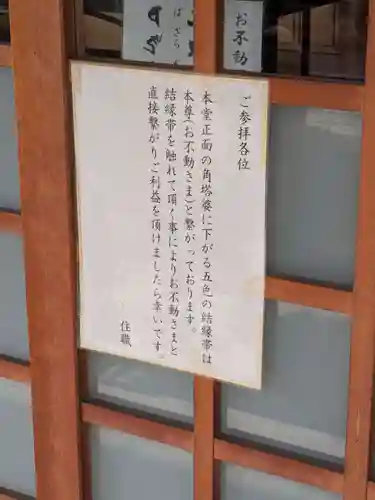 ご参拝各位
本堂正面の角塔婆に下がる五色の結縁帯は
本尊(お不動さま)と繋がっております。
結縁帯を触れて頂く事によりお不動さまと
直接繋がりご利益を頂けましたら幸いです。
住職
お不動